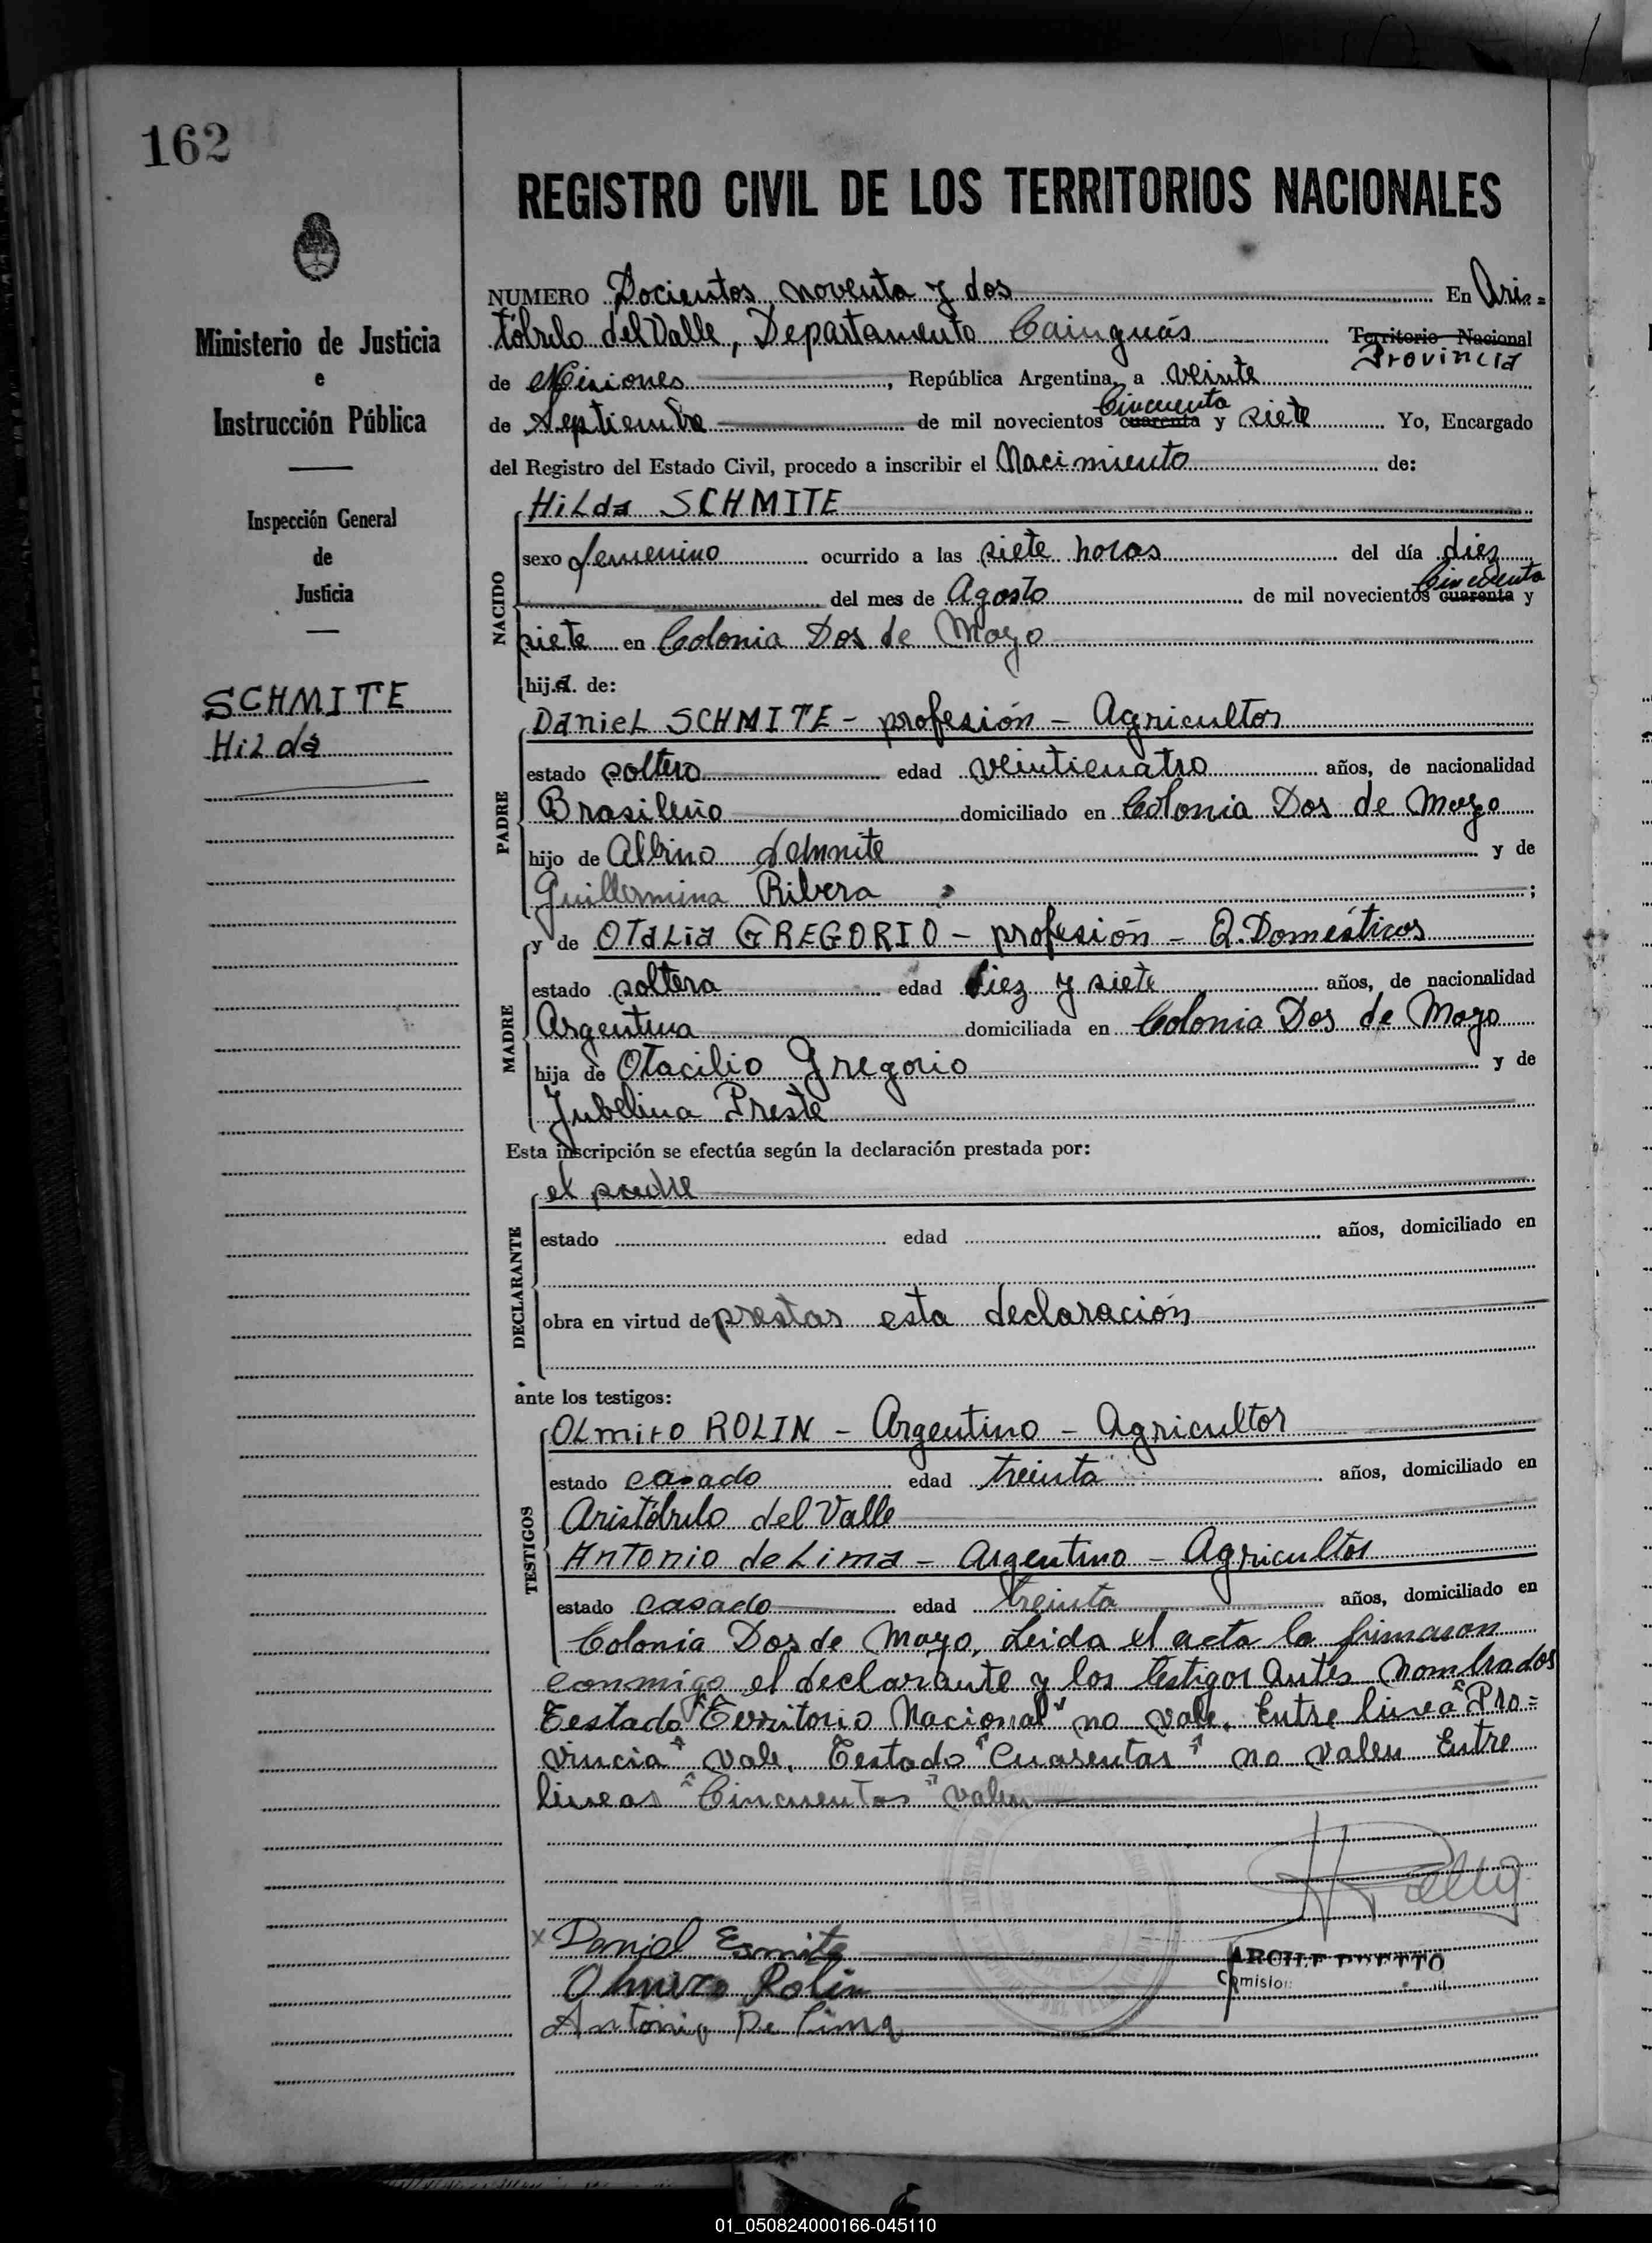 162
REGISTRO CIVIL DE LOS TERRITORIOS NACIONALES
Ministerio de Justicia
e
Instrucción Pública
Inspección General
de
Justicia
SCHMITE
Hilda
NUMERO Docientos noventa y dos En Aris=
tóbulo del Valle, Departamento Cainguás Territorio Nacional
Provincia
de Misiones, República Argentina, a veinte
Cincuenta
de Septiembre de mil novecientos cuarenta y siete Yo, Encargado
del Registro del Estado Civil, procedo a inscribir el Nacimiento de:
NACIDO
Hilda SCHMITE
sexo femenino ocurrido a las siete horas del día diez
Cincuenta
del mes de Agosto de mil novecientos cuarenta y
siete en Colonia Dos de Mayo
hija. de:
PADRE
Daniel SCHMITE - profesión - Agricultor
estado soltero edad veinticuatro años, de nacionalidad
Brasileño domiciliado en Colonia Dos de Mayo
hijo de Albino Schmite y de
Guillermina Ribera ;
MADRE
y de OTaLia GREGORIO - profesión - Q. Domésticos
estado soltera edad diez y siete años, de nacionalidad
Argentina domiciliada en Colonia Dos de Mayo
hija de Otacilio Gregorio y de
Jubelina Preste
Esta inscripción se efectúa según la declaración prestada por:
DECLARANTE
el padre
estado edad años, domiciliado en
obra en virtud de prestar esta declaración
ante los testigos:
TESTIGOS
OLmiro ROLIN - Argentino - Agricultor
estado casado edad treinta años, domiciliado en
Aristóbulo del Valle
Antonio de Lima - Argentino - Agricultor
estado casado edad treinta años, domiciliado en
Colonia Dos de Mayo, Leida el acta la firmaron
conmigo el declarante y los testigos antes nombrados
Testado "Territorio Nacional" no vale. Entre linea "Pro=
vincia" vale. Testado "Cuarentas" no valen Entre
lineas "Cincuentas" valen
Daniel Esmite
Olmiro Rolin
Antonio De Lima
01_050824000166-045110